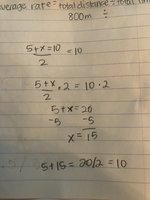 average rate = total distance ÷ total
800m ÷
5+x=10 = 10
2
5+x · 2 = 10 · 2
2
5+x = 20
-5 -5
x = 15
5+15 = 20/2 = 10